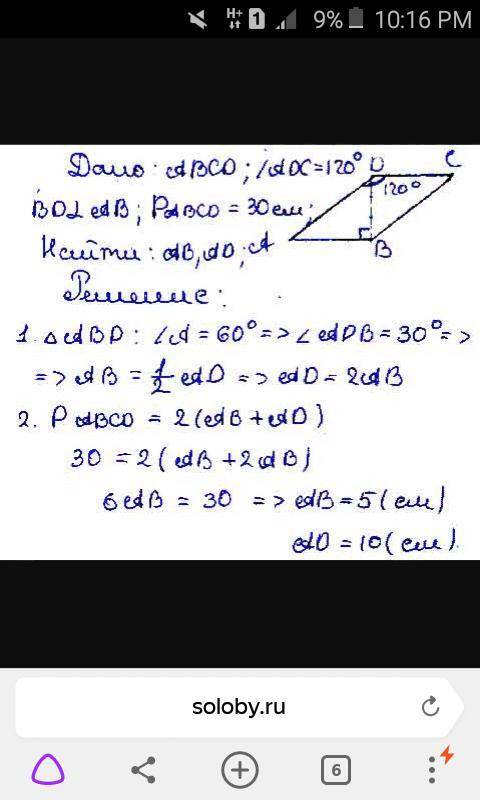 H+ 1 9% 10:16 PM
Дано: ABCD; ∠ADC=120°
BD⊥AB; PABCD = 30 см;
Найти: AB, AD;
D C
120°
A B
Решение:
1. △ABD: ∠A = 60° => ∠ADB = 30° =>
=> AB = 1/2 AD => AD = 2AB
2. PABCD = 2(AB+AD)
30 = 2(AB + 2AB)
6AB = 30 => AB = 5(см)
AD = 10(см).
soloby.ru
6